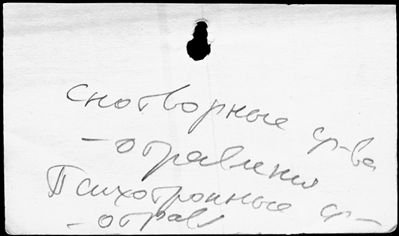 снотворные ср-ва
- отравления
Психотропные ср-
- отравл